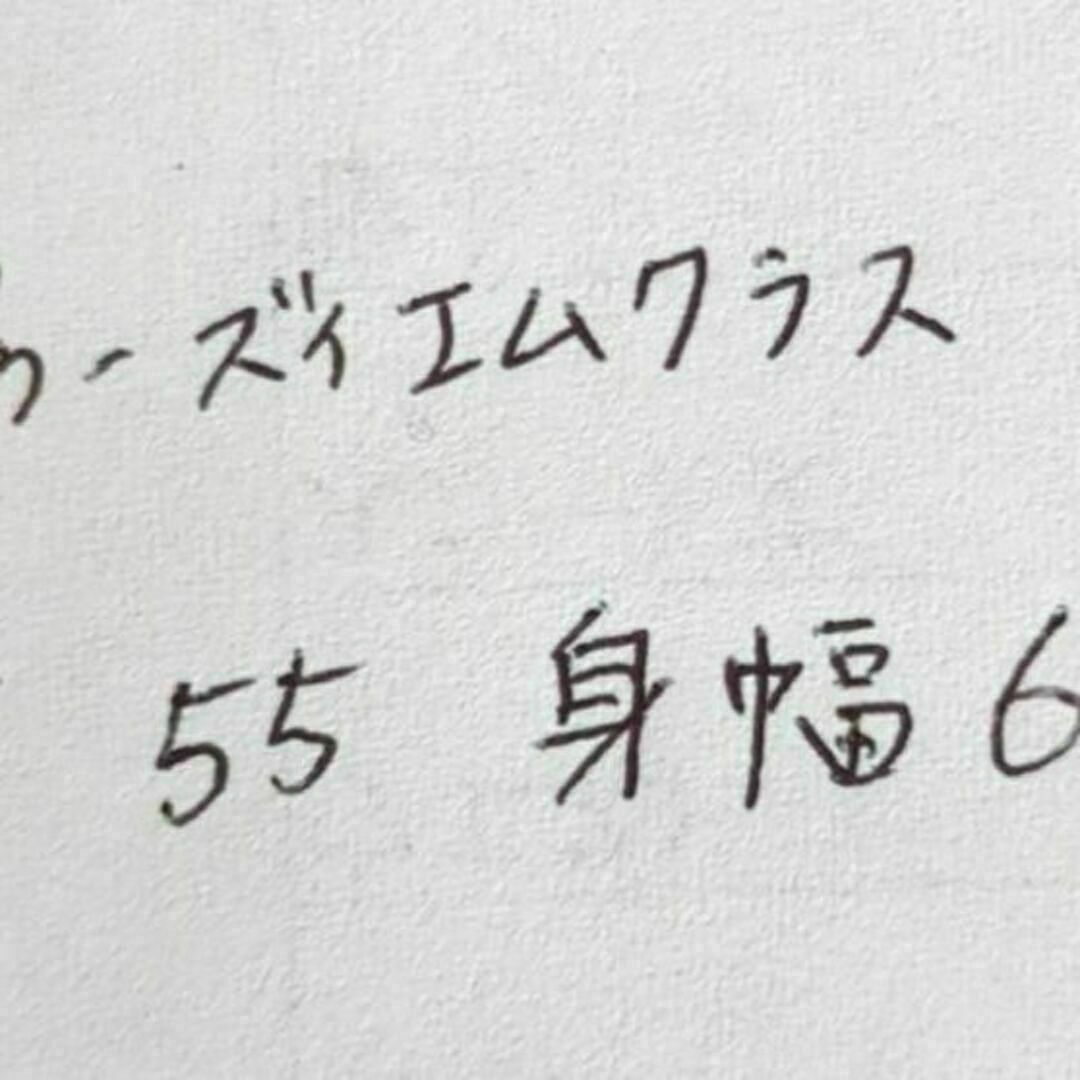 ーズィエムクラス
55 身幅 6